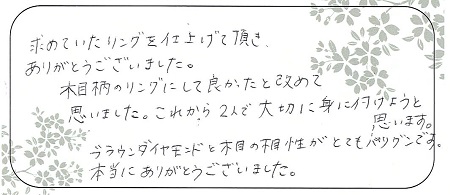 求めていたリングを仕上げて頂き、
ありがとうございました。
木目柄のリングにして良かったと改めて
思いました。これから2人で大切に身に付けようと
思います。
ブラウンダイヤモンドと木目の相性がとてもバツグンです。
本当にありがとうございました。